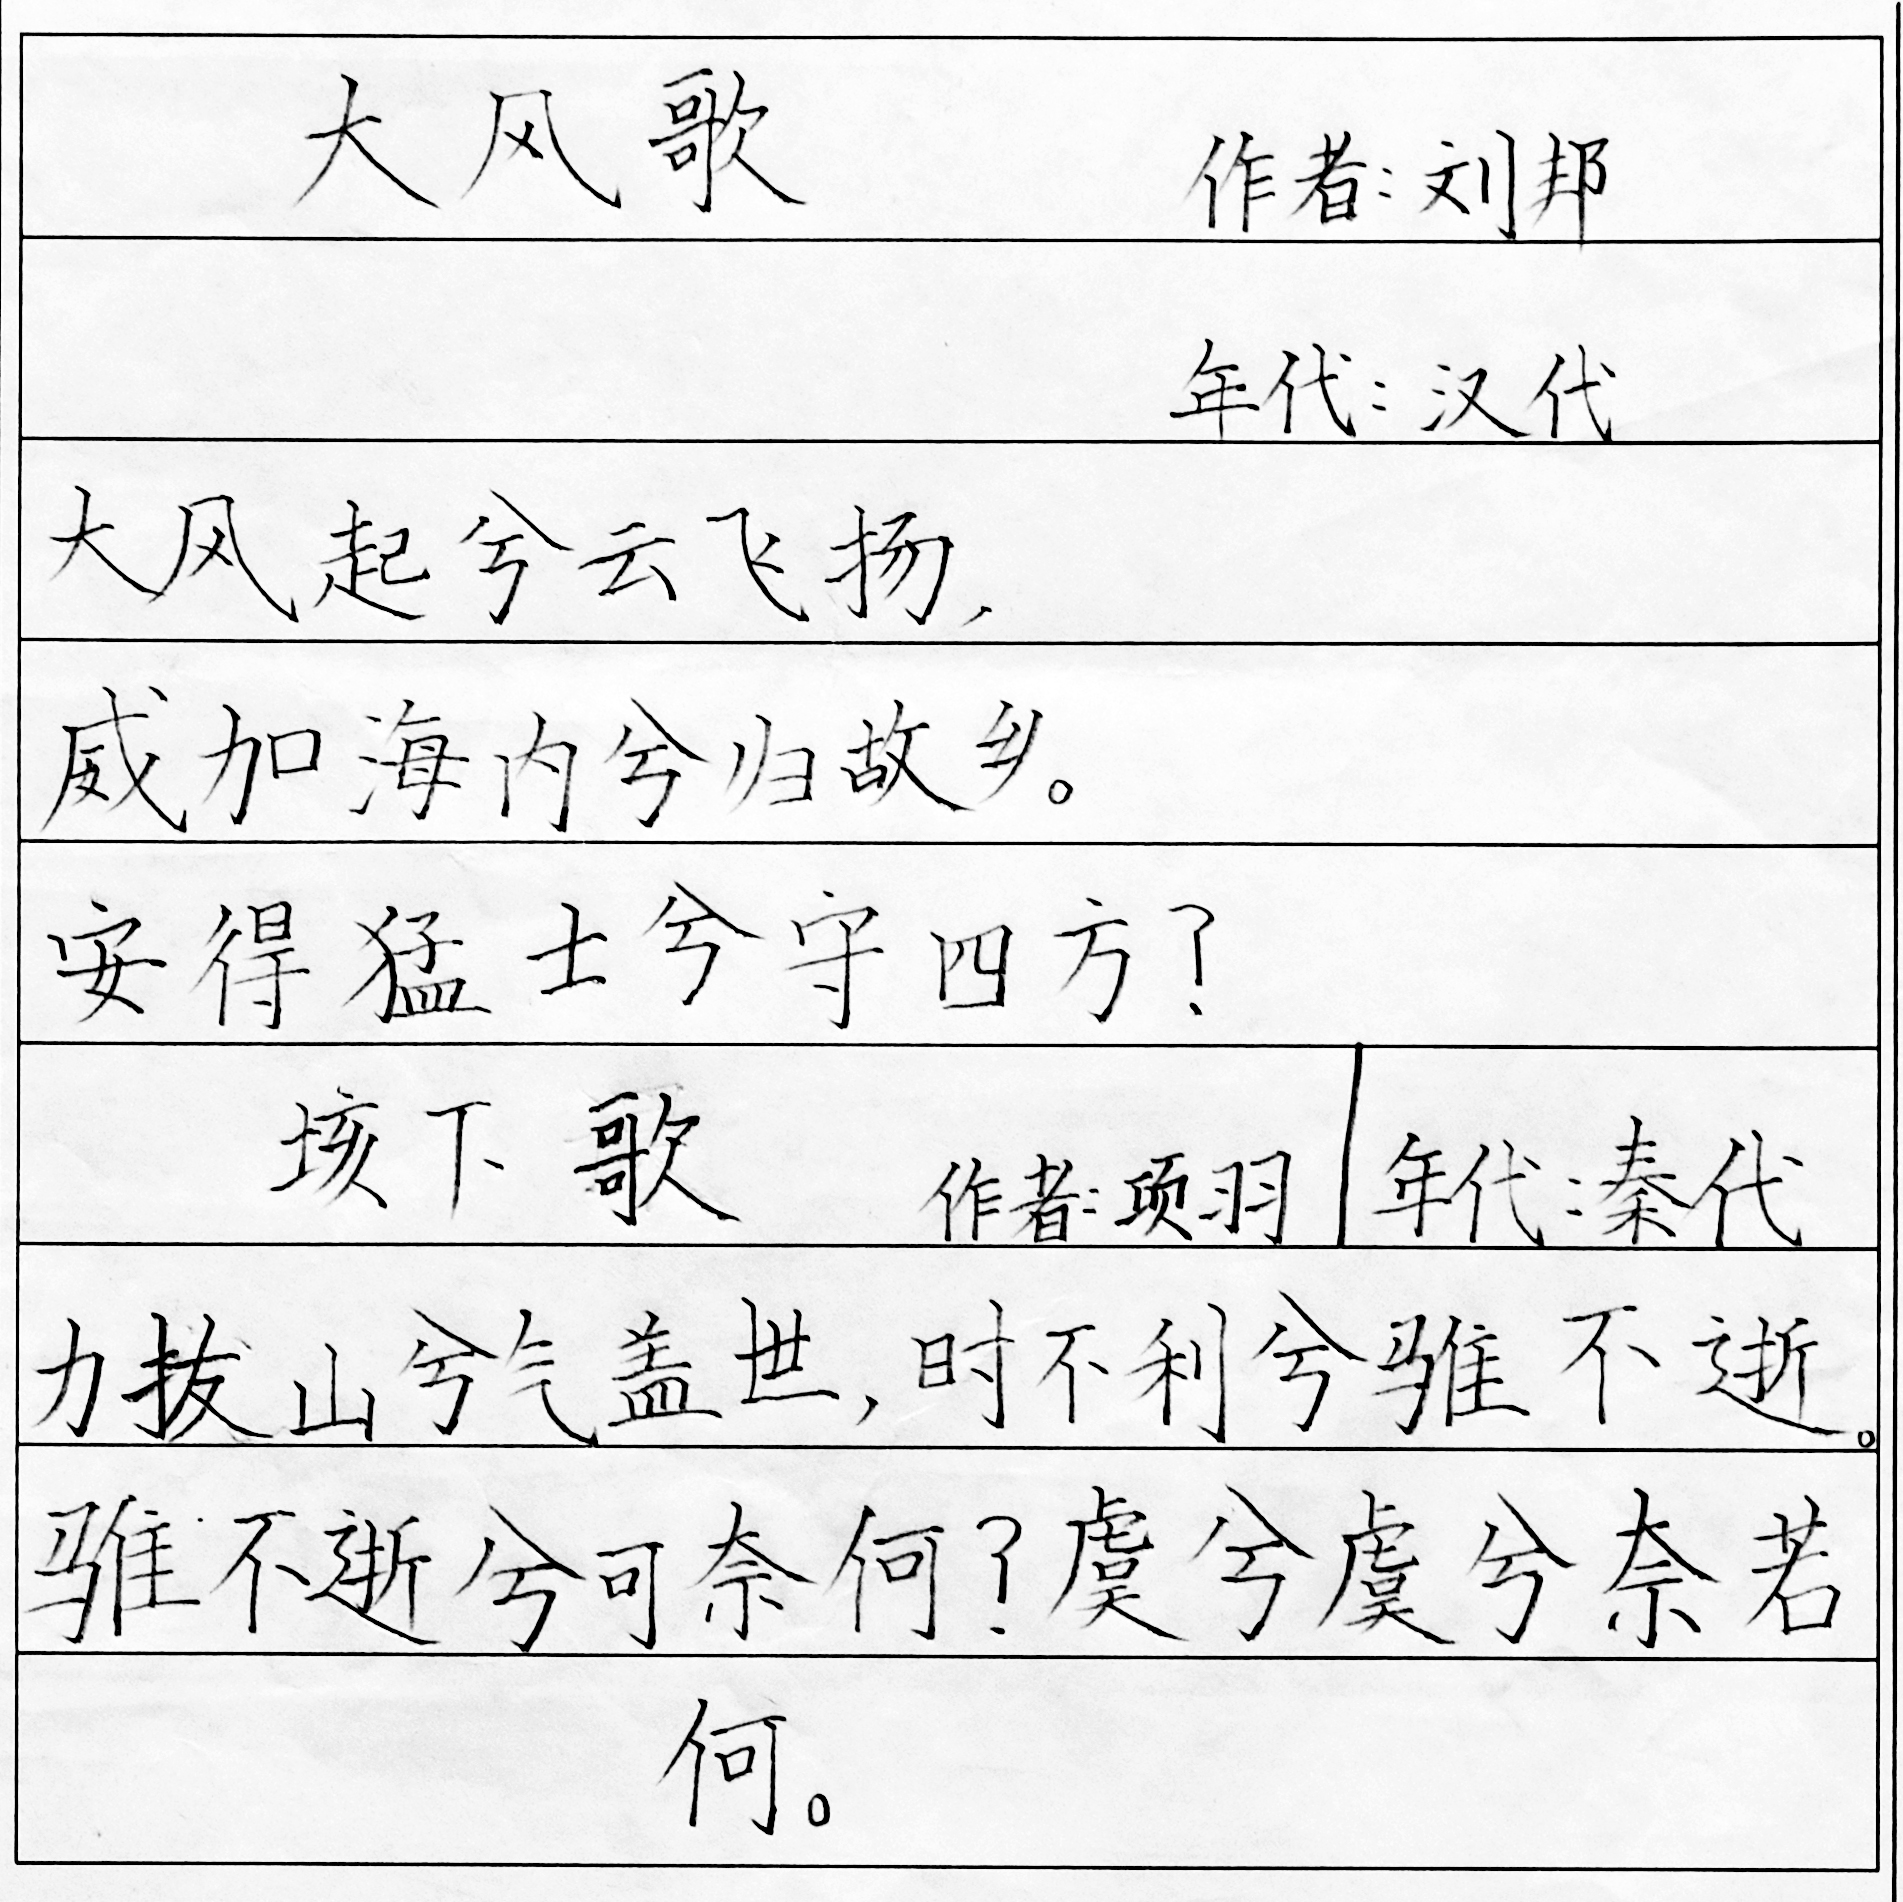 大风歌 作者:刘邦
年代:汉代
大风起兮云飞扬,
威加海内兮归故乡。
安得猛士兮守四方?
垓下歌 作者:项羽 | 年代:秦代
力拔山兮气盖世,时不利兮骓不逝。
骓不逝兮可奈何?虞兮虞兮奈若
何。